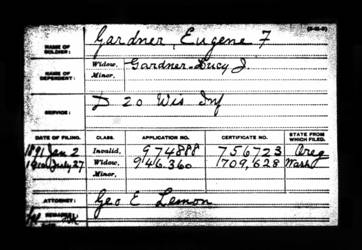 (3-9-3)
NAME OF SOLDIER: Gardner, Eugene F
NAME OF DEPENDENT: Widow, Gardner Lucy J.
Minor,
SERVICE: D 20 Wis Inf
DATE OF FILING. CLASS. APPLICATION NO. CERTIFICATE NO. STATE FROM WHICH FILED.
1891 Jan 2 Invalid, 974888 756723 Oreg
July 27 Widow, 946.360 709,628 Wash
Minor,
ATTORNEY: Geo E Lemon
REMARKS: